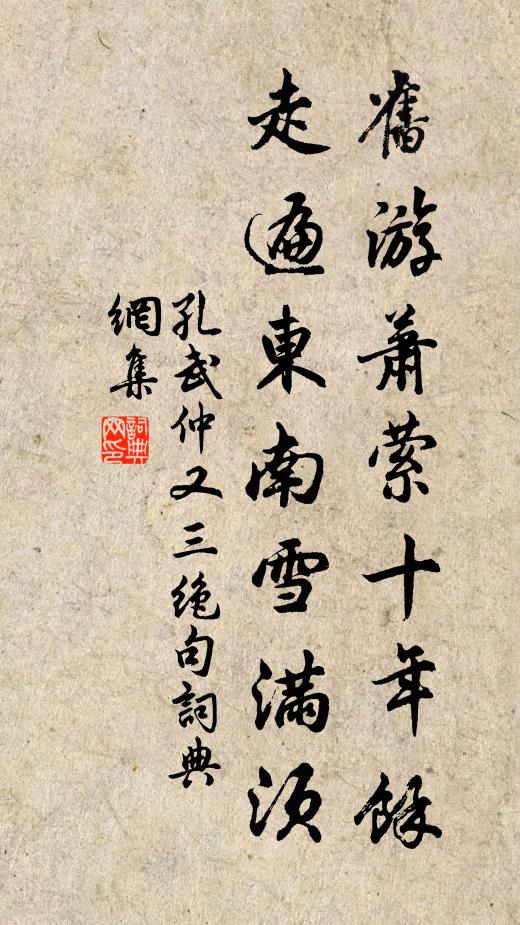 舊游蕭縈十年餘
走遍東南雪滿須
孔武仲又三絶句詞典
網集
詞典
网印